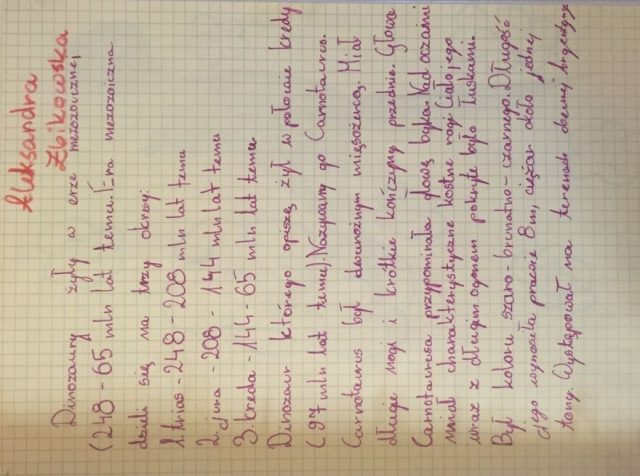 Aleksandra
Zbikowska
Dinozaury żyły w erze mezozoicznej
(248 - 65 mln lat temu). Era mezozoiczna
dzieli się na trzy okresy:
1. trias - 248 - 208 mln lat temu
2. jura - 208 - 144 mln lat temu
3. kreda - 144 - 65 mln lat temu
Dinozaur którego opiszę żył w połowie kredy
(97 mln lat temu). Nazywamy go Carnotaurus.
Carnotaurus był dwunożnym mięsożercą. Miał
długie nogi i krótkie kończyny przednie. Głowa
Carnotaurusa przypominała głowę byka. Nad oczami
miał charakterystyczne kostne rogi. Ciało jego
wraz z długim ogonem pokryte było łuskami.
Był koloru szaro-brunatno-czarnego. Długość
jego wynosiła prawie 8 m, ciężar około jednej
tony. Występował na terenach dawnej Argentyny